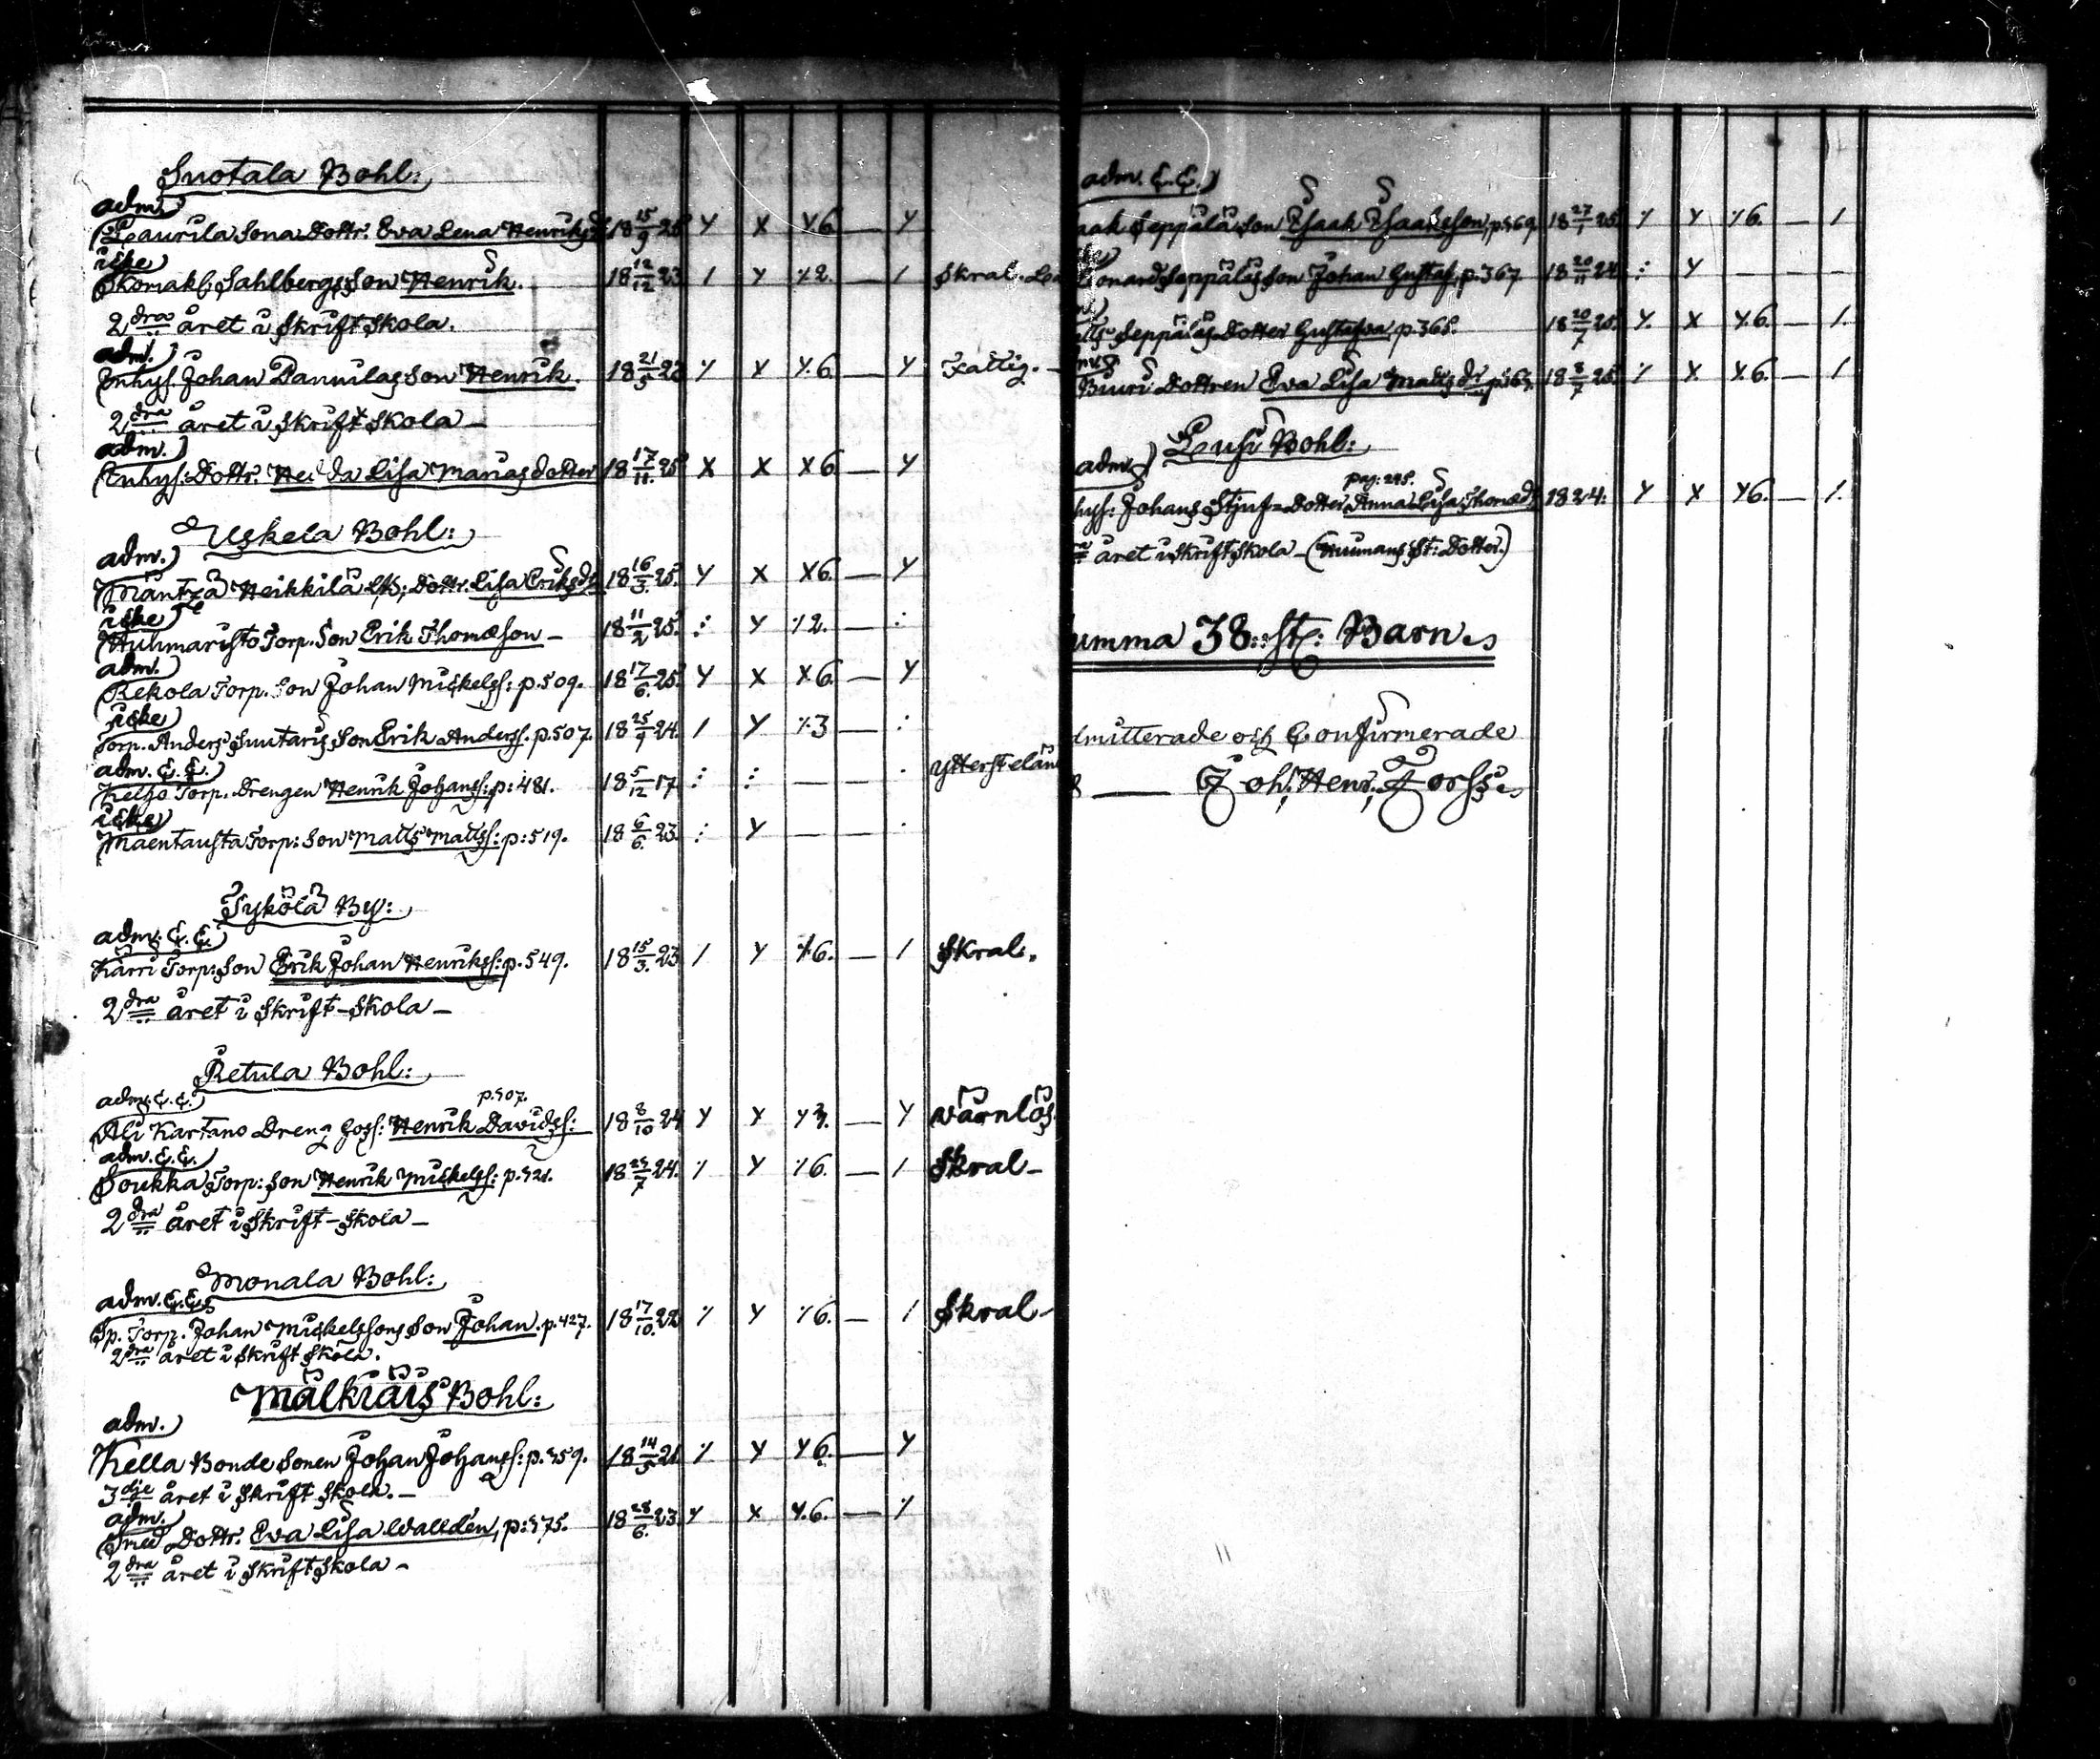 Suotala Bohl:
adm.
Laurila Sona Dottr. Eva Lena Henriksd 18 15/9 25 Y X Y6 — Y
icke
Skomak: Sahlbergs Son Henrik. 18 12/12 23 / Y Y2. — / Skral.
2dra året i Skrift Skola.
adm.
Inhys. Johan Dannilas Son Henrik. 18 21/5 23 Y X Y.6 — Y Fattig. —
2dra året i Skrift Skola —
adm.
Inhys: Dottr. Hedda Lisa Mariasdotter 18 17/11. 25 X X X6 — Y
Uskela Bohl:
adm.
Mäntzä Heikkilä Dottr. Lisa Eriksdr 18 16/3. 25. Y X X6. — Y
icke
Huhmaristo Torp. Son Erik Thomæson — 18 11/2 25. : Y Y2. — :
adm.
Rekola Torp. Son Johan Mickelss: p. 509. 18 17/6. 25. Y X X6. — Y
icke
Torp. Anders Suutaris Son Erik Anderss. p. 507. 18 25/7 24. / Y Y.3 — :
adm. C. C.
Torp. Drengen Henrik Johanss: p: 481. 18 5/12 17 : : — — . ytterst elän
icke
Maentausta Torp: Son Matts Mattss: p: 519. 18 6/6. 23. : Y — — .
Tykölä By:
adm. C. C.
Kärri Torp: Son Erik Johan Henrikss: p. 549. 18 15/3. 23 / Y Y.6. — / Skral.
2dra året i Skrift-Skola —
Retula Bohl:
adm. C. C. p. 407.
Ali Kartano Dreng Goss: Henrik Davidss: 18 8/10 24 Y Y Y3. — Y Värnlös
adm. C. C.
Soukka Torp: Son Henrik Mickelss: p. 421. 18 24/7 24. Y Y Y6. — / Skral —
2dra året i Skrift-Skola —
Monala Bohl:
adm. C. C.
Sp. Torp. Johan Mickelssons Son Johan. p. 427. 18 17/10. 22 Y Y Y6. — / Skral —
2dra året i Skrift Skola.
Mälkiäis Bohl:
adm.
Kella Bonde Sonen Johan Johanss: p. 359. 18 14/5 21 Y. Y Y6. — Y
3dje året i Skrift Skola. —
adm.
Smed Dottr. Eva Lisa Walldén, p: 375. 18 28/6. 23. Y X Y.6. — Y
2dra året i Skrift Skola —
adm. C. C.
aak Seppälä Son Isaak Isaaksson, p. 369. 18 27/1 25. Y. Y Y6. — /
Leonard Seppäläs Son Johan Gustaf, p. 367 18 20/11 24. : Y — — —
Seppäläs Dotter Gustafva, p. 365. 18 20/7 25. Y. X Y.6. — /.
Buuri Dottren Eva Lisa Mattsdr 18 8/7 25. Y. X. Y.6. — /
Lusi Bohl:
adm.
pag: 295.
hys: Johans Stjuf-Dotter Anna Lisa Thomæd: 1824: Y X Y6. — /.
året i Skrift Skola — (Huumans St: Dotter.)
umma 38: st: Barn.
dmitterade och Confirmerade
— Joh: Henr. Forss.